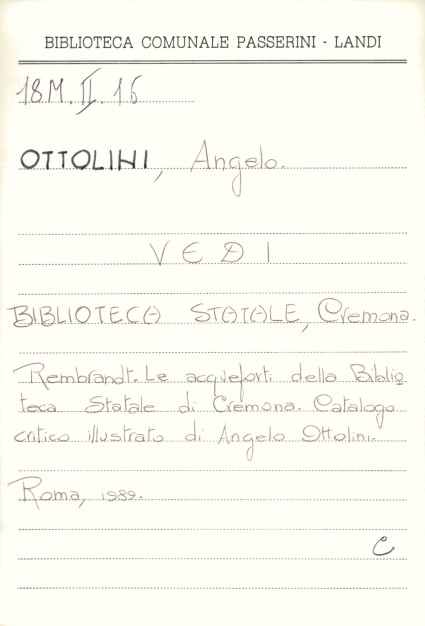 BIBLIOTECA COMUNALE PASSERINI - LANDI
18M. II. 16
OTTOLINI, Angelo.
VEDI
BIBLIOTECA STATALE, Cremona.
Rembrandt. Le acqueforti della Biblio
teca Statale di Cremona. Catalogo
critico illustrato di Angelo Ottolini.
Roma, 1989.
C